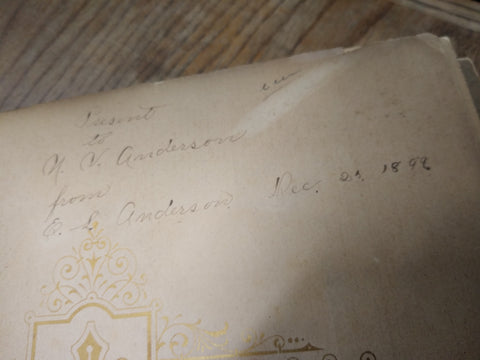 Present
to
N. V. Anderson
from
E. L. Anderson Dec. 25. 1892